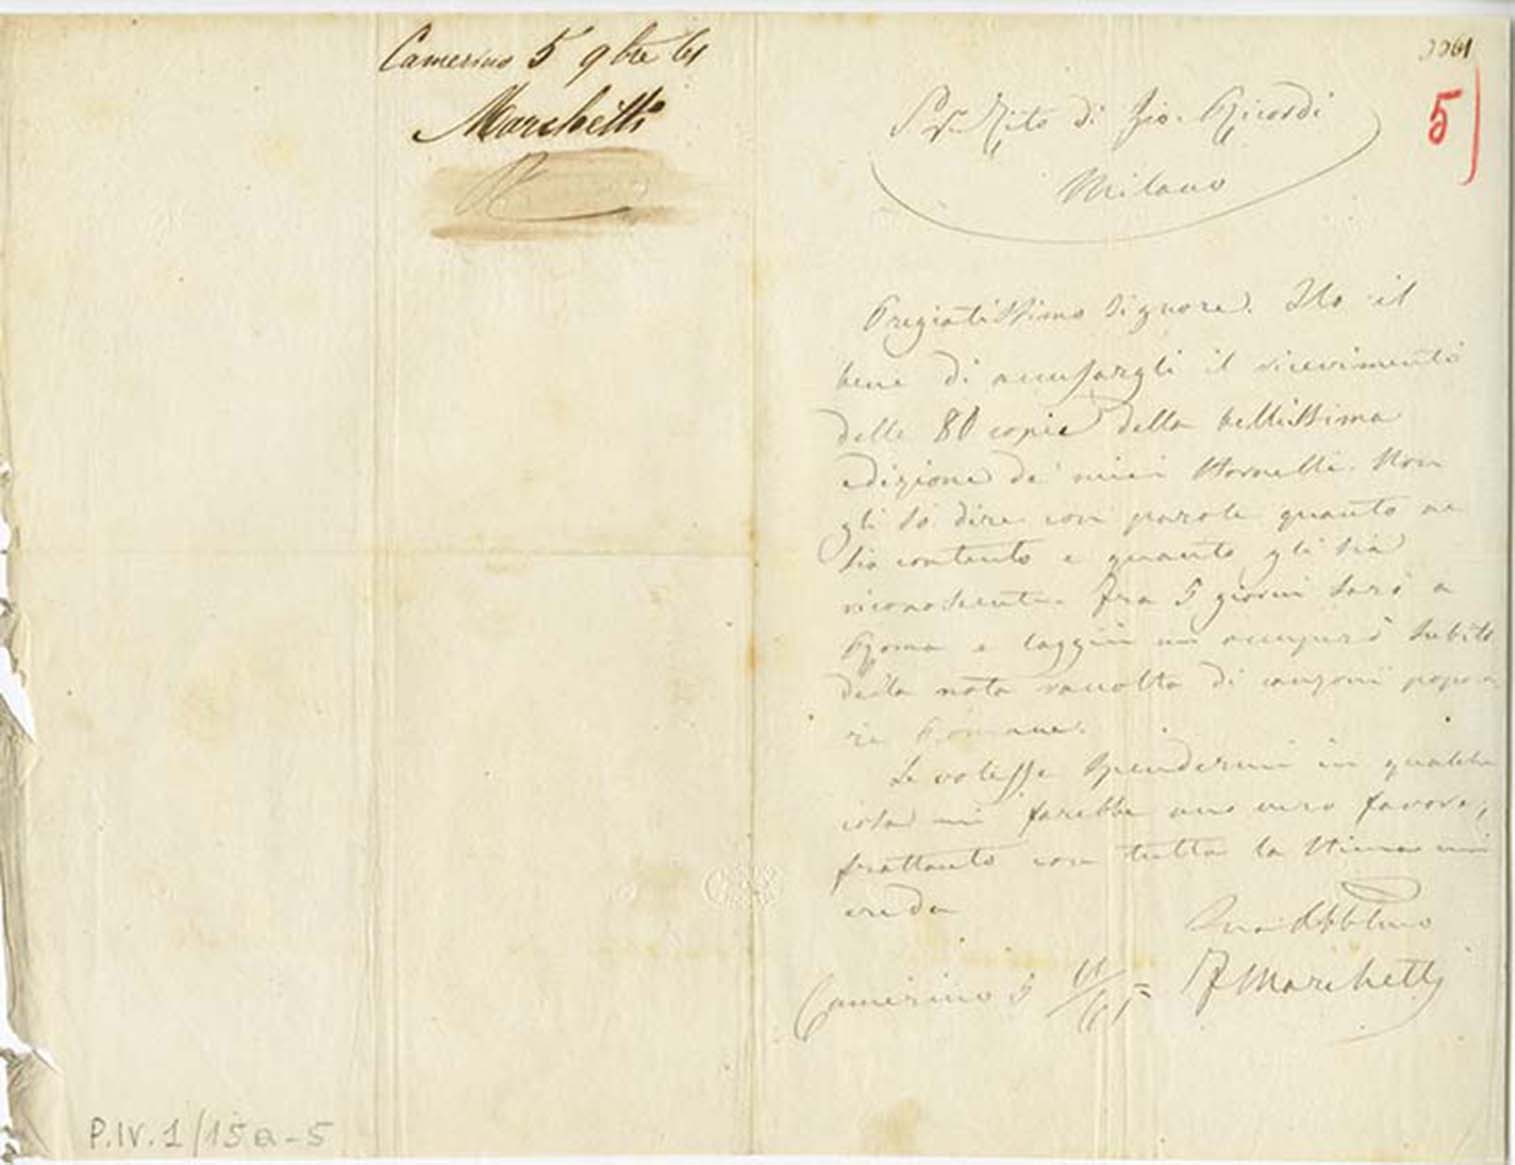 Camerino 5 9bre 61
Marchetti
1861
5)
Sigr Tito di Gio. Ricordi
Milano
Pregiatissimo Signore. Ho il
bene di accusargli il ricevimento
delle 80 copie della bellissima
edizione de' miei Stornelli. Non
gli so dire con parole quanto ne
sia contento e quanto gli sia
riconoscente. Fra 5 giorni sarò a
Roma e laggiù mi occuperò subito
della nota raccolta di canzoni popola
ri Romane.
Se volesse spendermi in qualche
cosa mi farebbe uno vero favore,
frattanto con tutta la stima mi
creda
Suo Obblmo
F Marchetti
Camerino 5 11/61
P.IV.1/15a-5